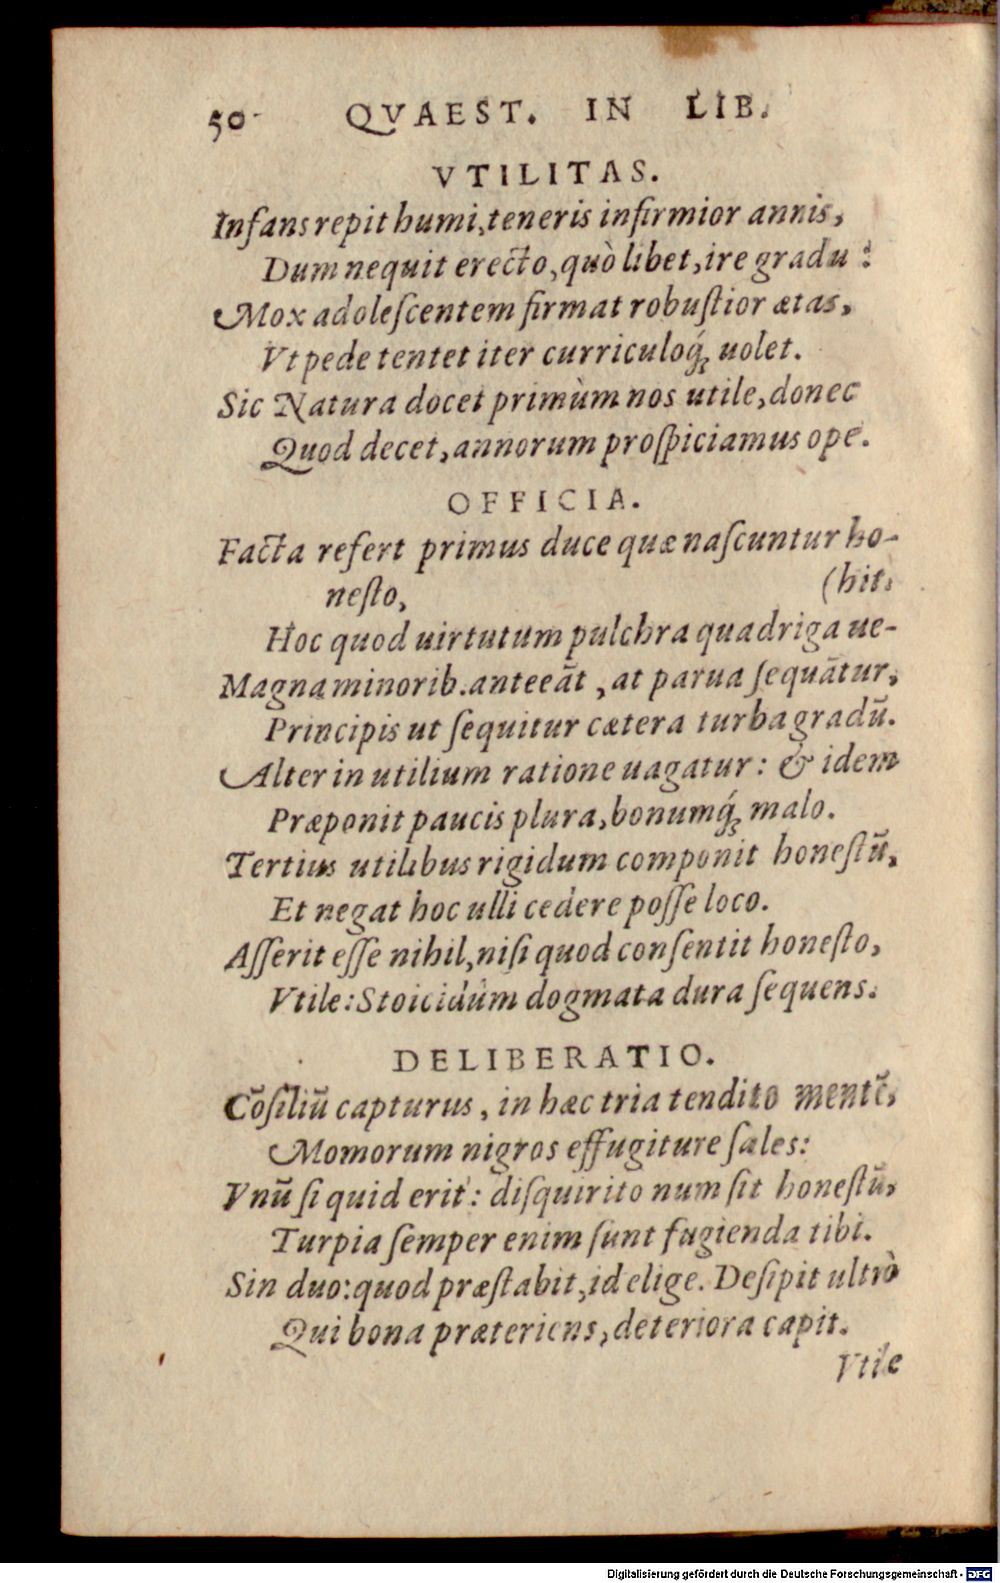 50 QVAEST. IN LIB.
VTILITAS.
Infans repit humi, teneris infirmior annis,
Dum nequit erecto, quò libet, ire gradu:
Mox adoleſcentem firmat robuſtior ætas,
Vt pede tentet iter curriculoq́ꝫ uolet.
Sic Natura docet primùm nos utile, donec
Quod decet, annorum proſpiciamus ope.
OFFICIA.
Facta refert primus duce quæ naſcuntur ho-
neſto, (hit.
Hoc quod uirtutum pulchra quadriga ue-
Magna minorib. anteeāt, at parua ſequātur,
Principis ut ſequitur cætera turba gradū.
Alter in utilium ratione uagatur: & idem
Præponit paucis plura, bonumq́ꝫ malo.
Tertius utilibus rigidum componit honeſtū,
Et negat hoc ulli cedere poſſe loco.
Aſſerit eſſe nihil, niſi quod conſentit honeſto,
Vtile: Stoicidûm dogmata dura ſequens.
DELIBERATIO.
Cōſiliū capturus, in hæc tria tendito mentē,
Momorum nigros effugiture ſales:
Vnū ſi quid erit: diſquirito num ſit honeſtū,
Turpia ſemper enim ſunt fugienda tibi.
Sin duo: quod præſtabit, id elige. Deſipit ultrò
Qui bona præteriens, deteriora capit.
Vtile
Digitalisierung gefördert durch die Deutsche Forschungsgemeinschaft - DFG